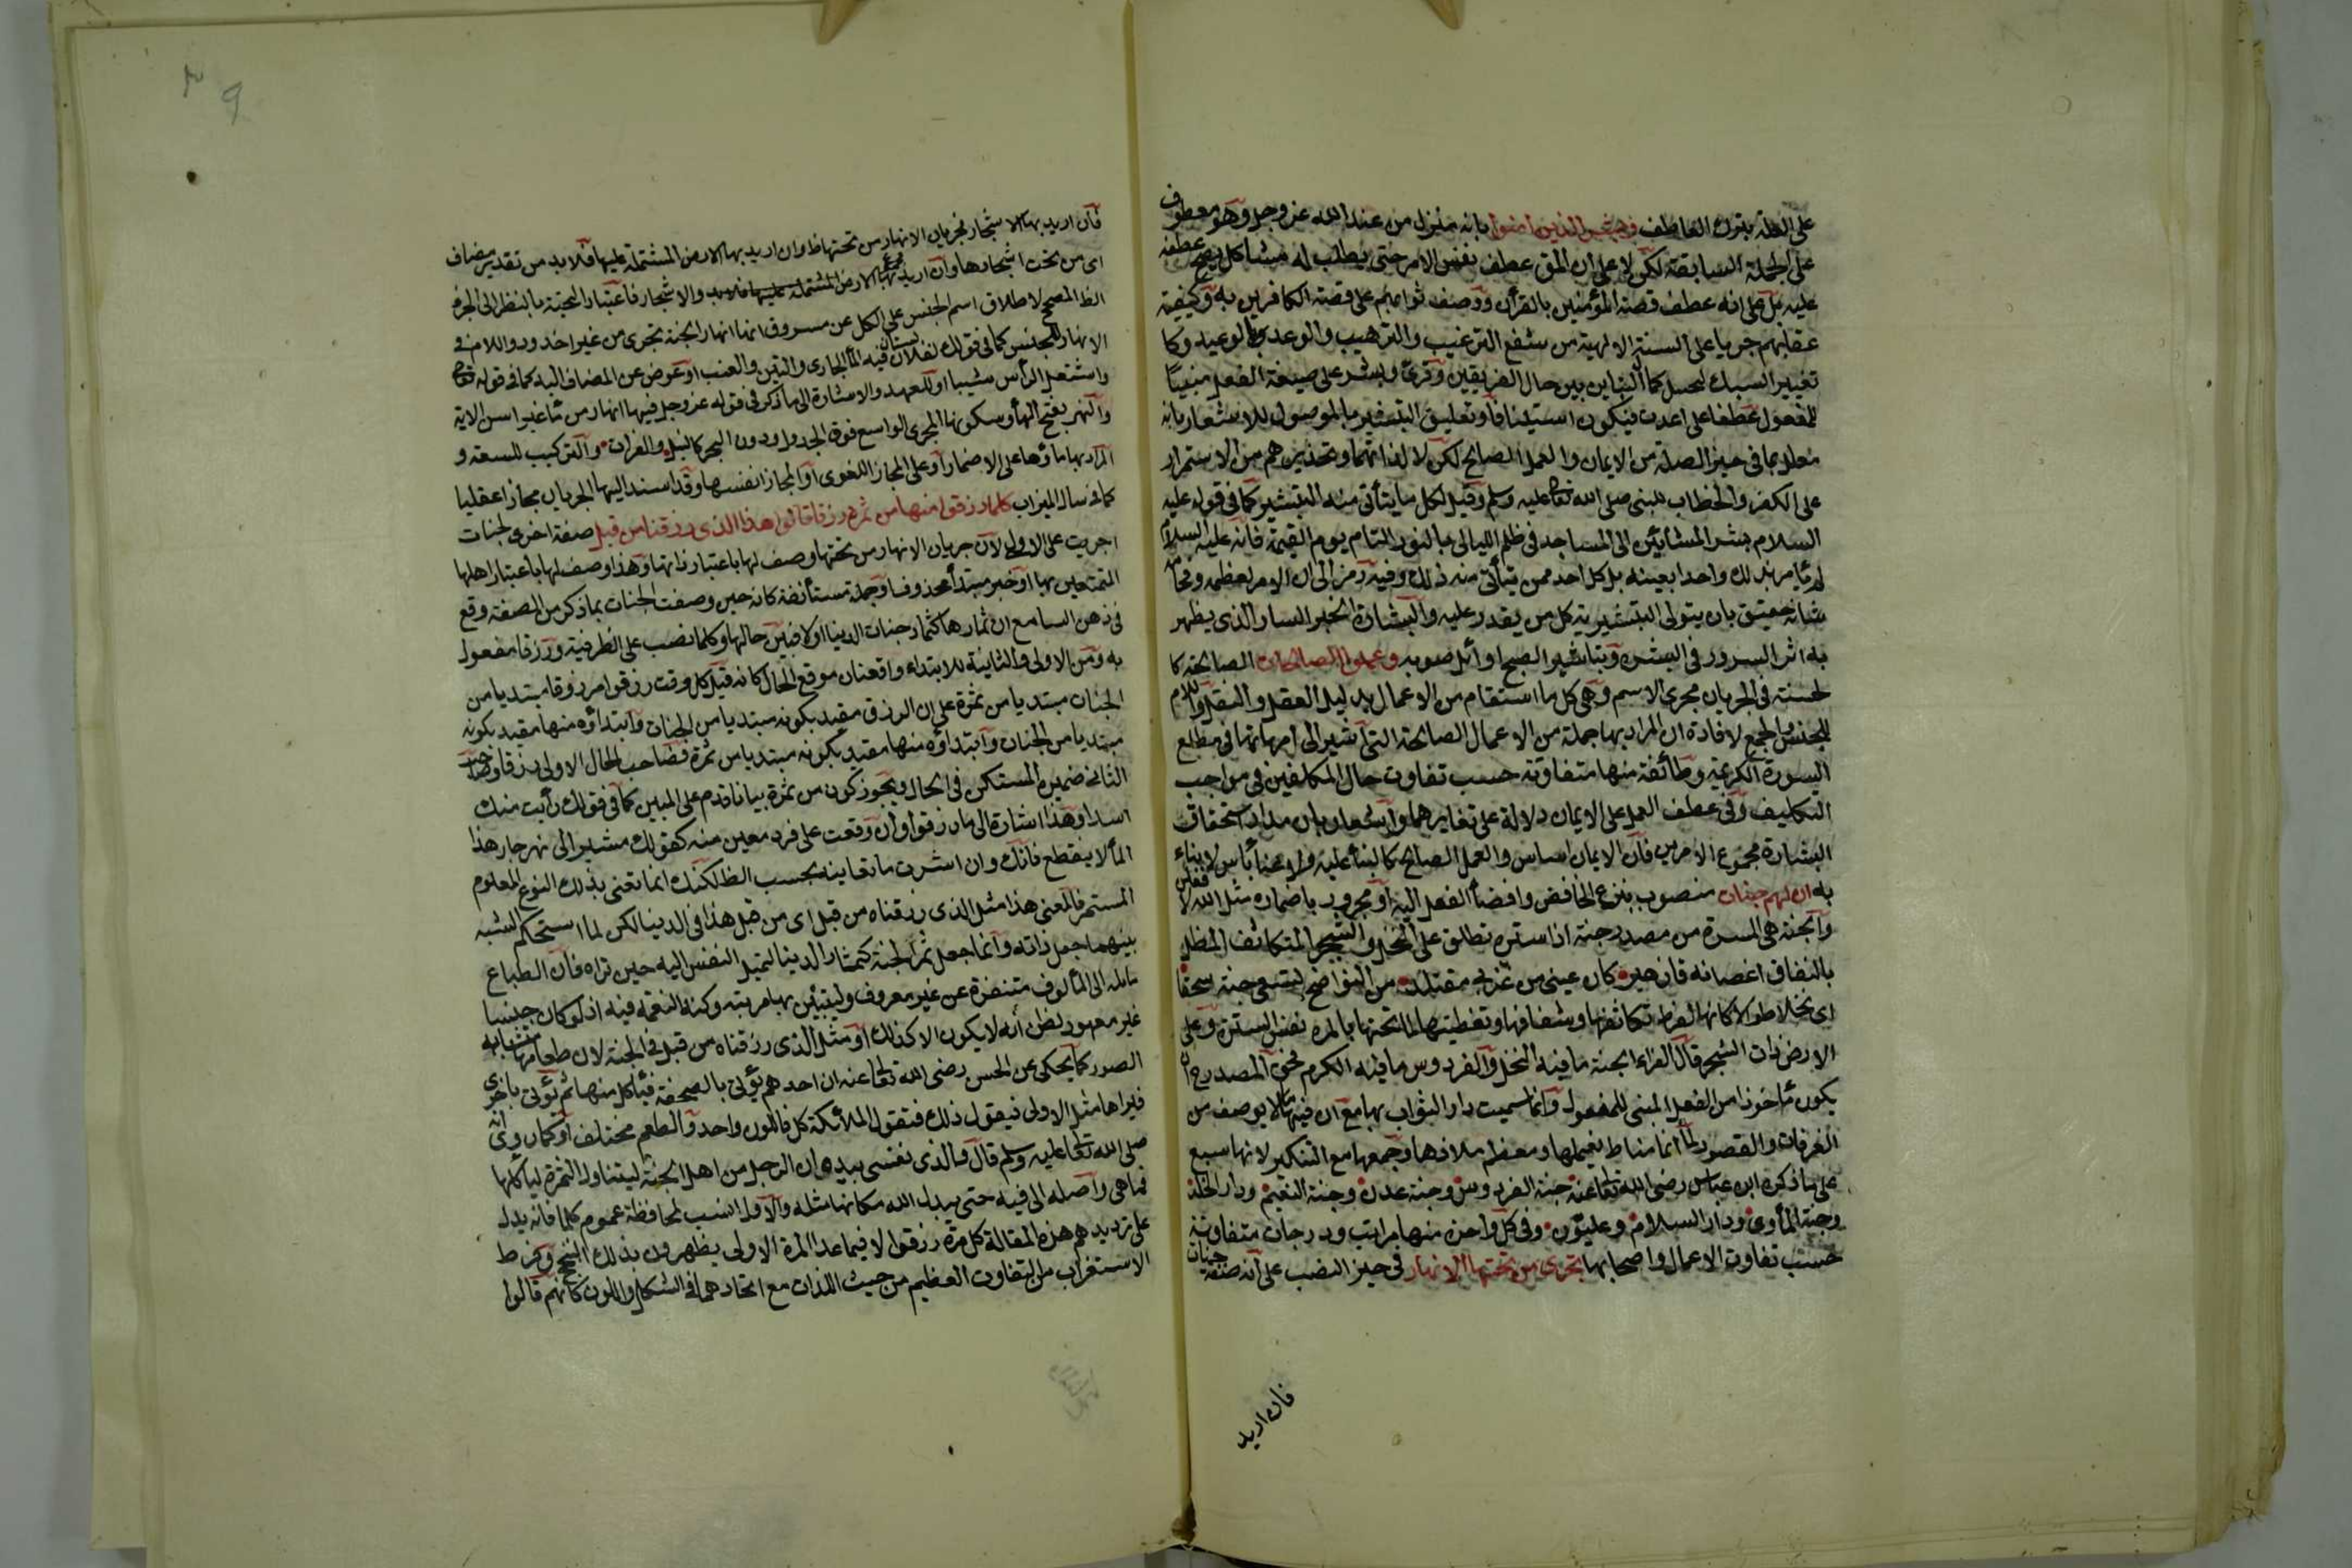 على العلة بترك العاطف وبشر الذين آمنوا بانه منزل من عند الله عز وجل وهو معطوف
على الجملة السابقة لكن لا على ان المق عطف نفس الامر حتى يطلب له مشاكل يصح عطفه
عليه بل على انه عطف قصة المؤمنين بالقرآن ووصف ثوابهم على قصة الكافرين به وكيفية
عقابهم جريا على السنة الالهية من شفع الترغيب والترهيب والوعد بالوعيد وكا
تغيير السبك لتخييل كمال التباين بين حال الفريقين وقرئ وبشر على صيغة الفعل مبنيا
للمفعول عطفا على اعدت فيكون استينافا وتعليق التبشير بالموصول للاشعار بانه
معلل بما في حيز الصلة من الايمان والعمل الصالح لكن لا لذاتهما وتحذيرهم من الاستمرار
على الكفر والخطاب للنبي صلى الله تعالى عليه وسلم وقيل لكل من يتأتى منه التبشير كما في قوله عليه
السلام بشر المشائين الى المساجد في ظلم الليالى بالنور التام يوم القيمة فانه عليه السلام
لم يأمر بذلك واحدا بعينه بل كل احد ممن يتأتى منه ذلك وفيه رمز الى ان الامر لعظمه وفخامة
شأنه حقيق بان يتولى التبشير به كل من يقدر عليه والبشارة الخبر السار الذى يظهر
به اثر السرور في البشرة وتباشير الصبح اوائل ضوءه وعملوا الصالحات الصالحة كا
لحسنة في الجريان مجرى الاسم وهى كل ما استقام من الاعمال بدليل العقل والنقل واللام
للجنس والجمع لافادة ان المراد بها جملة من الاعمال الصالحة التى اشير الى امهاتها في مطلع
السورة الكريمة وطائفة منها متفاوتة حسب تفاوت حال المكلفين في مواجب
التكليف وفي عطف العمل على الايمان دلالة على تغايرهما واشعار بان مدار استحقاق
البشارة مجموع الامرين فان الايمان اساس والعمل الصالح كالبناء عليه ولا غناء بأس لا بناء
به ان لهم جنات منصوب بنزع الخافض وافضاء الفعل اليه او مجرور باضماره مثل الله لافعلن
والجنة هى المرة من مصدر جنه اذا ستره تطلق على النخل والشجر المتكاثف المظلل
بالتفاف اغصانه قال زهير كان عينى من غربى مقتلة من النواضح تسقى جنة سحقا
اى نخلا طوالا كانها لفرط تكاثفها والتفافها وتغطيتها لما تحتها بالمرة نفس السترة وعلى
الارض ذات الشجر قال الفراء الجنة ما فيه النخل والفردوس ما فيه الكرم فحق المصدر ح ان
يكون مأخوذا من الفعل المبنى للمفعول وانما سميت دار الثواب بها مع ان فيها ما لا يوصف من
الغرفات والقصور لما انها مناط نعيمها ومعظم ملاذها وجمعها مع التنكير لانها سبع
على ما ذكره ابن عباس رضى الله تعالى عنه جنة الفردوس وجنة عدن وجنة النعيم ودار الخلد
وجنة المأوى ودار السلام وعليون وفي كل واحدة منها مراتب ودرجات متفاوتة
حسب تفاوت الاعمال واصحابها تجرى من تحتها الانهار في حيز النصب على انه صفة جنات
فان اريد
فان اريد بها الاشجار فجريان الانهار من تحتها ظ وان اريد بها الارض المشتملة عليها فلا بد من تقدير مضاف
اى من تحت اشجارها وان اريد بها مجموع الارض والاشجار فاعتبار التحتية بالنظر الى الجزء
الظ المصحح لاطلاق اسم الجنس على الكل عن مسروق انها انهار الجنة تجرى من غير اخدود واللام في
الانهار للجنس كما في قولك لفلان بستان فيه الماء الجارى والتين والعنب او عوض عن المضاف اليه كما في قوله تعالى
واشتعل الرأس شيبا او للعهد والاشارة الى ما ذكر في قوله عز وجل فيها انهار من ماء غير اسن الاية
والنهر بفتح الهاء وسكونها المجرى الواسع فوق الجدول ودون البحر كالنيل والفرات والتركيب للسعة و
المراد بها ماؤها على الاضمار او على المجاز اللغوى او المجاز انفسها وقد اسند اليها الجريان مجازا عقليا
كما في سال الميزاب كلما رزقوا منها من ثمرة رزقا قالوا هذا الذى رزقنا من قبل صفة اخرى لجنات
اجريت على الاولى لان جريان الانهار من تحتها وصف لها باعتبار ذاتها وهذا وصف لها باعتبار اهلها
المتمتعين بها او خبر مبتدأ محذوف او جملة مستأنفة كانه حين وصفت الجنات بما ذكر من الصفة وقع
في ذهن السامع ان ثمارها كثمار جنات الدنيا او لا فبين حالها وكلما نصب على الظرفية ورزقا مفعول
به ومن الاولى والثانية للابتداء واقعتان موقع الحال كانه قيل كل وقت رزقوا مرزوقا مبتديا من
الجنات مبتديا من ثمرة على ان الرزق مقيد بكونه مبتديا من الجنات وابتداؤه منها مقيد بكونه
مبتديا من الجنان وابتداؤه منها مقيد بكونه مبتديا من ثمرة فصاحب الحال الاولى رزقا وصاحب
الثانى ضميره المستكن في الحال ويجوز كون من ثمرة بيانا قدم على المبين كما في قولك رأيت منك
اسدا وهذا اشارة الى ما رزقوا وان وقعت على فرد معين منه كقولك مشيرا الى نهر جار هذا
الماء لا ينقطع فانك وان اشرت ما تعاينه بحسب الظ لكنك انما تعنى بذلك النوع المعلوم
المستمر فالمعنى هذا مثل الذى رزقناه من قبل اى من قبل هذا في الدنيا لكن لما استحكم الشبه
بينهما جعل ذاته وانما جعل ثمر الجنة كثمار الدنيا لتميل النفس اليه حين تراه فان الطباع
مائلة الى المألوف متنفرة عن غير معروف وليتبين بها مزيته وكنه النعمة فيه اذ لو كان جنسا
غير معهود لظن انه لا يكون الا كذلك او مثل الذى رزقناه من قبل في الجنة لان طعامها متشابه
الصور كما يحكى عن الحسن رضى الله تعالى عنه ان احدهم يؤتى بالصحفة فيأكل منها ثم يؤتى باخرى
فيراها مثل الاولى فيقول ذلك فتقول الملائكة كل فاللون واحد والطعم مختلف او كما روى انه
صلى الله تعالى عليه وسلم قال والذى نفسى بيده ان الرجل من اهل الجنة ليتناول الثمرة ليأكلها
فما هى واصلة الى فيه حتى يبدل الله مكانها مثله والاول انسب لمحافظة عموم كلما فانه يدل
على ترديدهم هذه المقالة كل مرة رزقوا لا فيما عدا المرة الاولى يظهرون بذلك التبجح وفرط
الاستغراب من التفاوت العظيم من حيث اللذات مع اتحادهما في الشكل واللون كانهم قالوا